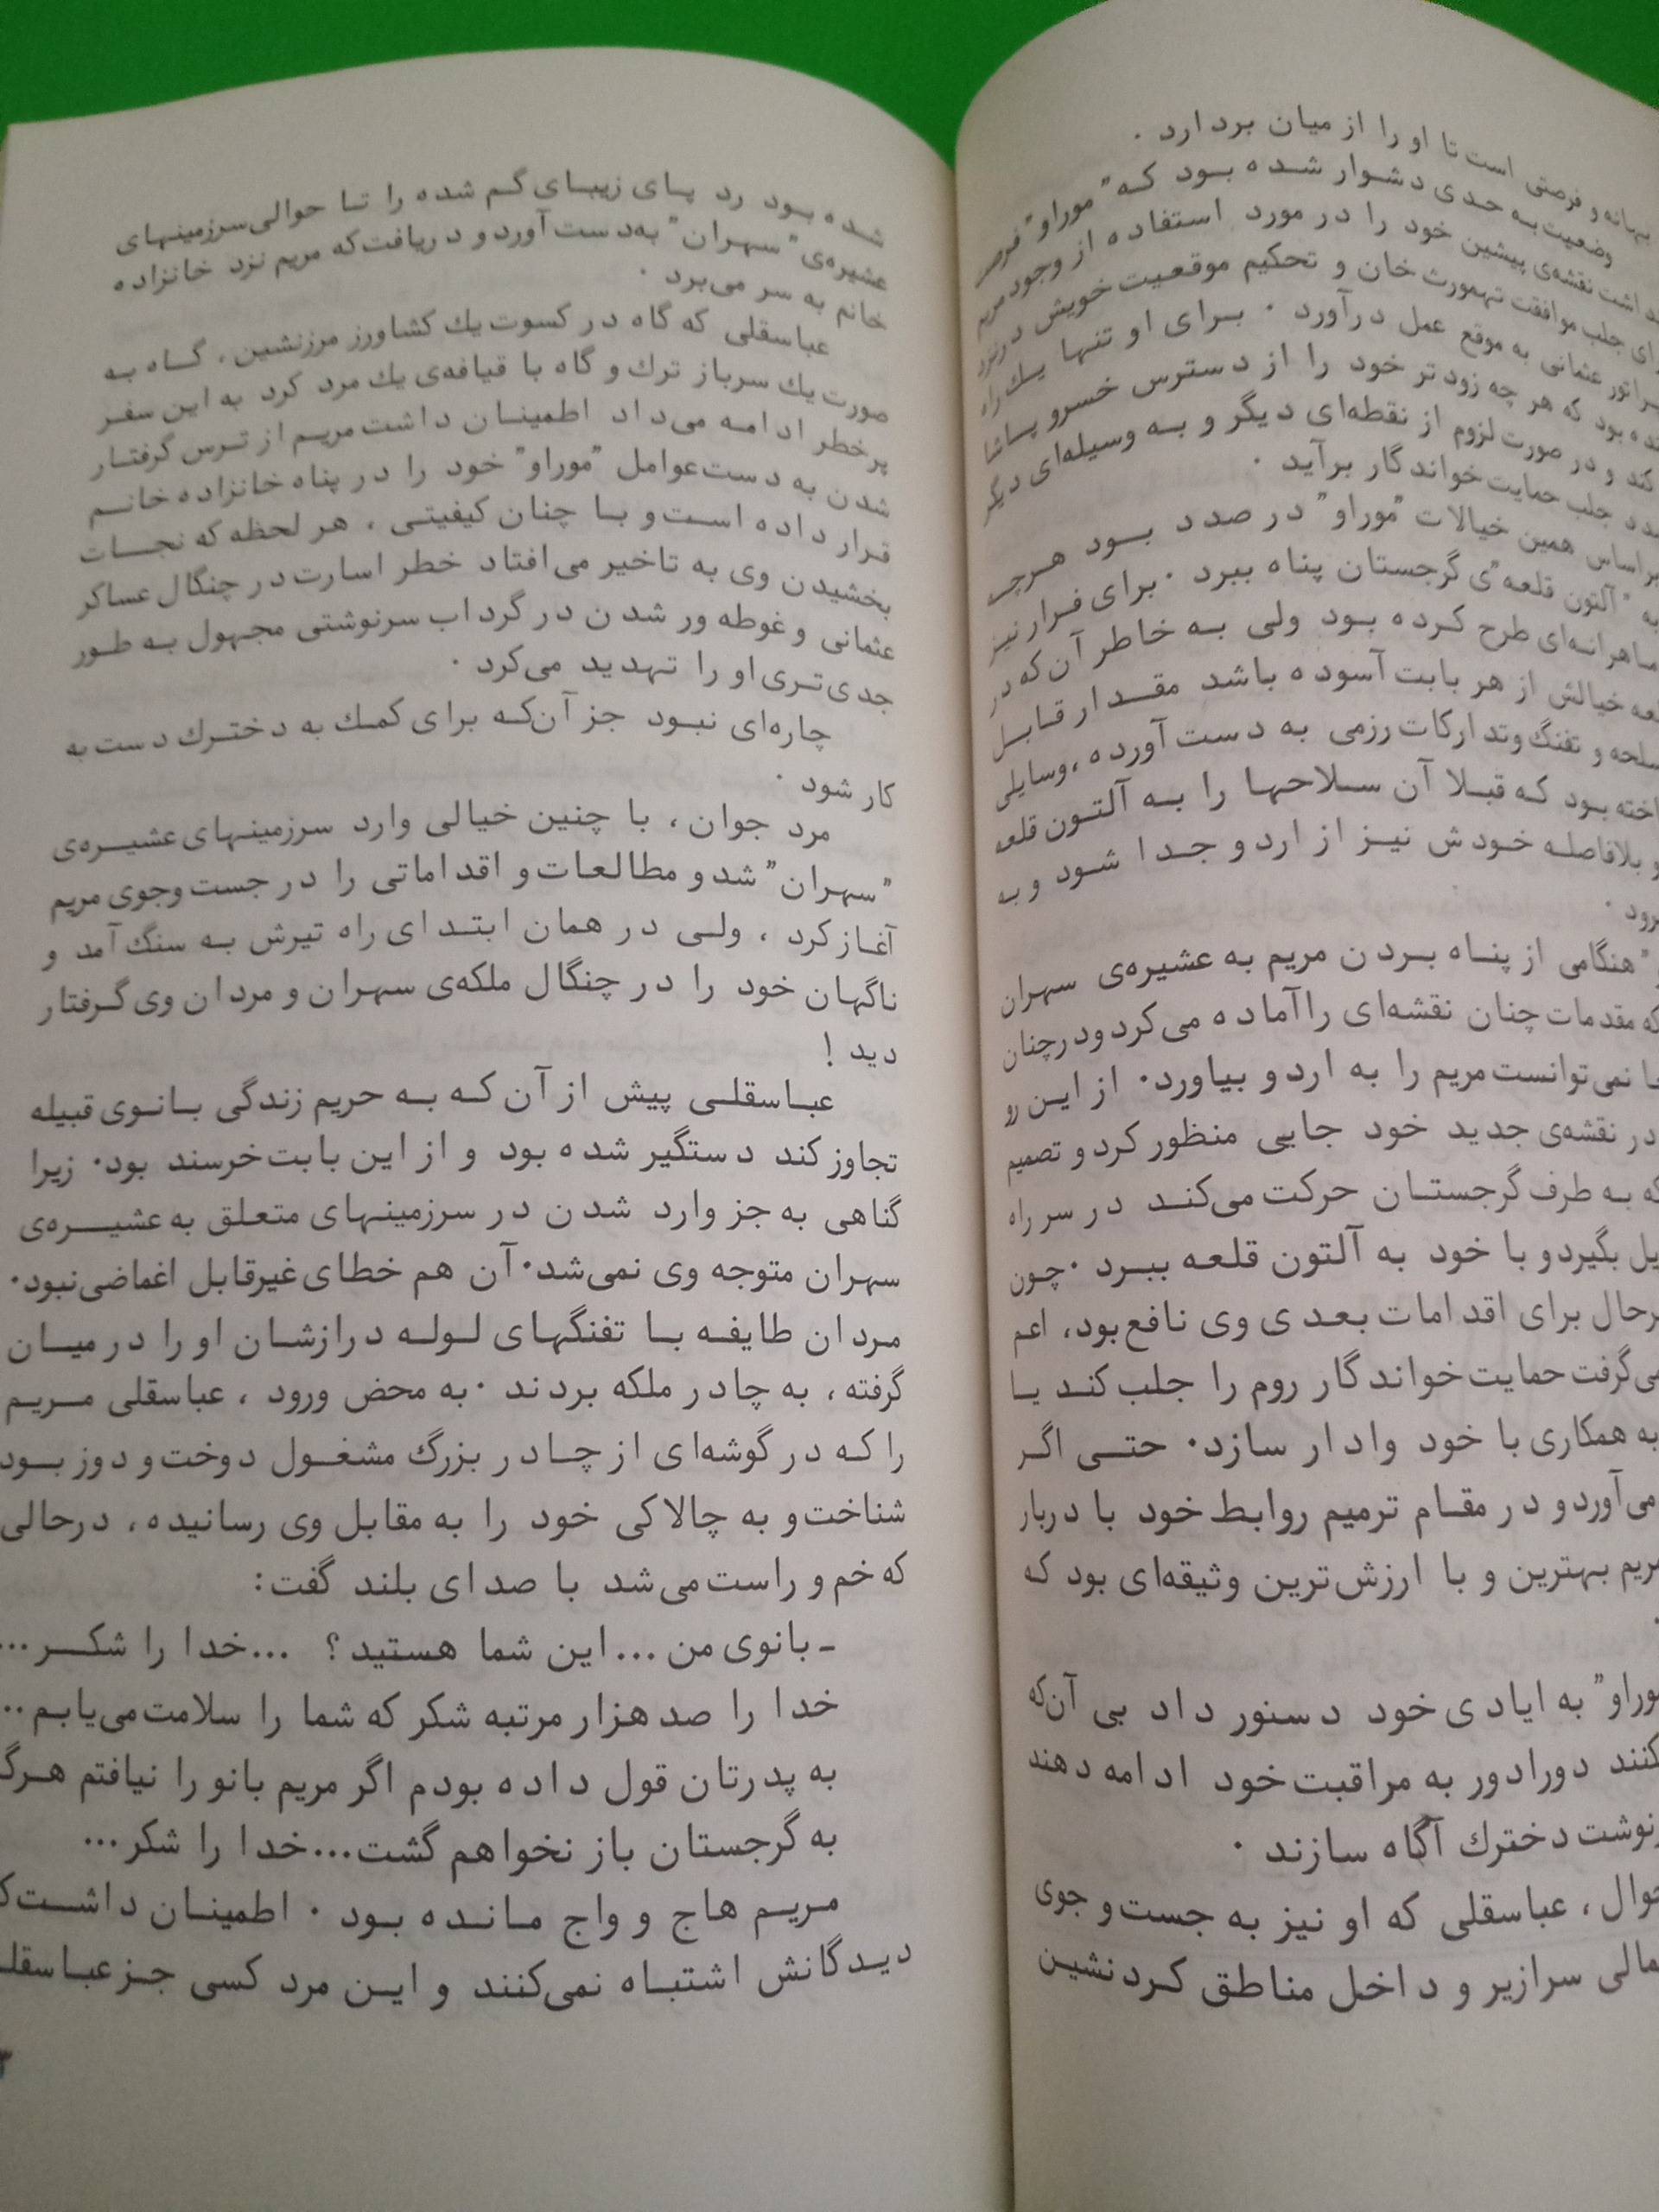 بهانه و فرصتی است تا او را از میان بردارد .
وضعیت به حدی دشوار شده بود که "موراو" فرصت
داشت نقشه‌ی پیشین خود را در مورد استفاده از وجود مریم
برای جلب موافقت تهمورث خان و تحکیم موقعیت خویش در نزد
عثمانی به موقع عمل درآورد . برای او تنها یک راه
بود که هر چه زودتر خود را از دسترس خسرو پاشا
کند و در صورت لزوم از نقطه‌ای دیگر و به وسیله‌ای دیگر
جلب حمایت خواندگار برآید .
براساس همین خیالات "موراو" در صدد بود هرچه
به "آلتون قلعه"ی گرجستان پناه ببرد . برای فرار نیز
ماهرانه‌ای طرح کرده بود ولی به خاطر آن‌که در
خیالش از هر بابت آسوده باشد مقدار قابل
و تفنگ و تدارکات رزمی به دست آورده ، وسایلی
بود که قبلا آن سلاحها را به آلتون قلعه
و بلافاصله خودش نیز از اردو جدا شود و به
برود .
" هنگامی از پناه بردن مریم به عشیره‌ی سهران
که مقدمات چنان نقشه‌ای را آماده می‌کرد و درچنان
نمی‌توانست مریم را به اردو بیاورد . از این رو
در نقشه‌ی جدید خود جایی منظور کرد و تصمیم
که به طرف گرجستان حرکت می‌کند در سر راه
بگیرد و با خود به آلتون قلعه ببرد . چون
برای اقدامات بعدی وی نافع بود، اعم
می‌گرفت حمایت خواندگار روم را جلب کند یا
به همکاری با خود وادار سازد . حتی اگر
می‌آورد و در مقام ترمیم روابط خود با دربار
مریم بهترین و با ارزش‌ترین وثیقه‌ای بود که
.
موراو" به ایادی خود دستور داد بی آن‌که
کنند دورادور به مراقبت خود ادامه دهند
دخترك آگاه سازند .
عباسقلی که او نیز به جست و جوی
سرازیر و داخل مناطق کردنشین
شده بود رد پای زیبای گم شده را تا حوالی سرزمینهای
عشیره‌ی "سهران" به‌دست آورد و دریافت که مریم نزد خانزاده
خانم به سر می‌برد .
عباسقلی که گاه در کسوت یك کشاورز مرزنشین ، گاه به
صورت یك سرباز ترك و گاه با قیافه‌ی یك مرد کرد به این سفر
پرخطر ادامه می‌داد اطمینان داشت مریم از ترس گرفتار
شدن به دست عوامل "موراو" خود را در پناه خانزاده خانم
قرار داده است و با چنان کیفیتی ، هر لحظه که نجات
بخشیدن وی به تاخیر می‌افتاد خطر اسارت در چنگال عساکر
عثمانی و غوطه ور شدن در گرداب سرنوشتی مجهول به طور
جدی‌تری او را تهدید می‌کرد .
چاره‌ای نبود جز آن‌که برای کمك به دخترك دست به
کار شود .
مرد جوان ، با چنین خیالی وارد سرزمینهای عشیره‌ی
"سهران" شد و مطالعات و اقداماتی را در جست وجوی مریم
آغاز کرد ، ولی در همان ابتدای راه تیرش به سنگ آمد و
ناگهان خود را در چنگال ملکه‌ی سهران و مردان وی گرفتار
دید !
عباسقلی پیش از آن که به حریم زندگی بانوی قبیله
تجاوز کند دستگیر شده بود و از این بابت خرسند بود . زیرا
گناهی به جز وارد شدن در سرزمینهای متعلق به عشیره‌ی
سهران متوجه وی نمی‌شد . آن هم خطای غیرقابل اغماضی نبود .
مردان طایفه با تفنگهای لوله درازشان او را در میان
گرفته ، به چادر ملکه بردند . به محض ورود ، عباسقلی مریم
را که در گوشه‌ای از چادر بزرگ مشغول دوخت و دوز بود
شناخت و به چالاکی خود را به مقابل وی رسانیده ، درحالی
که خم و راست می‌شد با صدای بلند گفت:
ـ بانوی من ... این شما هستید ؟ ... خدا را شکر ...
خدا را صد هزار مرتبه شکر که شما را سلامت می‌یابم ..
به پدرتان قول داده بودم اگر مریم بانو را نیافتم
به گرجستان باز نخواهم گشت ... خدا را شکر ...
مریم هاج و واج مانده بود . اطمینان داشت
دیدگانش اشتباه نمی‌کنند و این مرد کسی جز